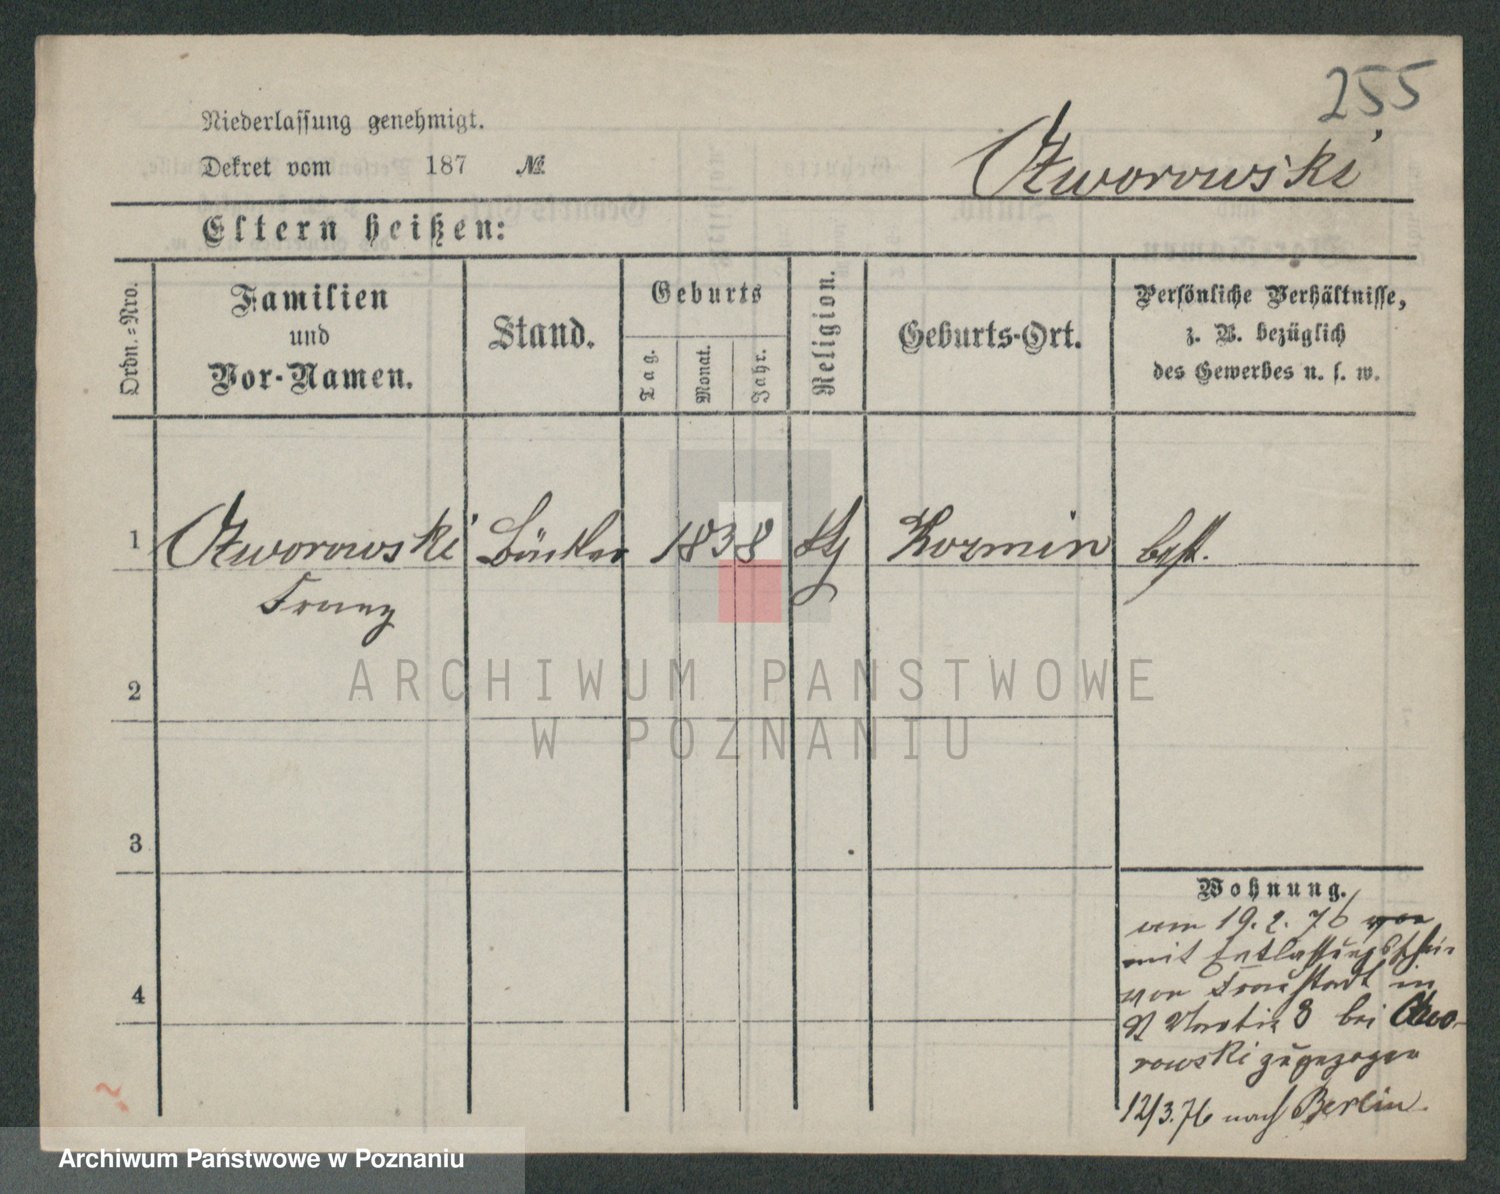 255
Niederlassung genehmigt.
Dekret vom 187 №
Otworowski
Eltern heißen:
Ordn.-Nro.
Familien und Vor-Namen.
Stand.
Geburts
Tag.
Monat.
Jahr.
Religion.
Geburts-Ort.
Persönliche Verhältnisse,
z. B. bezüglich
des Gewerbes u. s. w.
1 Otworowski 1838 Kozmin
Franz
2
3
4
Wohnung.
vom 19. 2. 76
mit Entlassungsschein
von Fraustadt in
St Martin 8 bei Otwo-
rowski zugezogen
12/3.76 nach Berlin.
ARCHIWUM PAŃSTWOWE
W POZNANIU
Archiwum Państwowe w Poznaniu